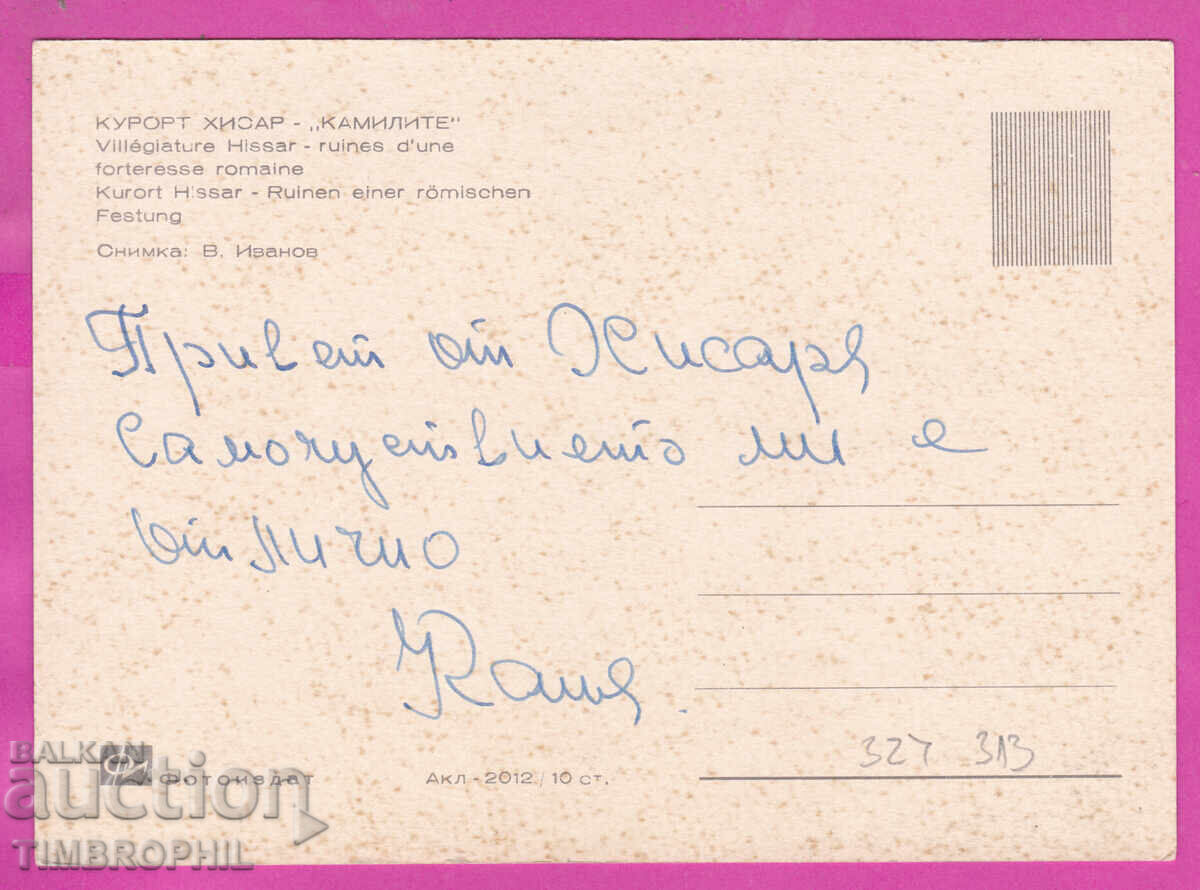 КУРОРТ ХИСАР - „КАМИЛИТЕ"
Villégiature Hissar - ruines d'une
forteresse romaine
Kurort Hissar - Ruinen einer römischen
Festung
Снимка: В. Иванов
Привет от Хисаря
Самочуствието ми е
отлично
Катя.
327 313
BALKAN
auction
TIMBROPHIL
Фотоиздат
Акл-2012/10 ст.